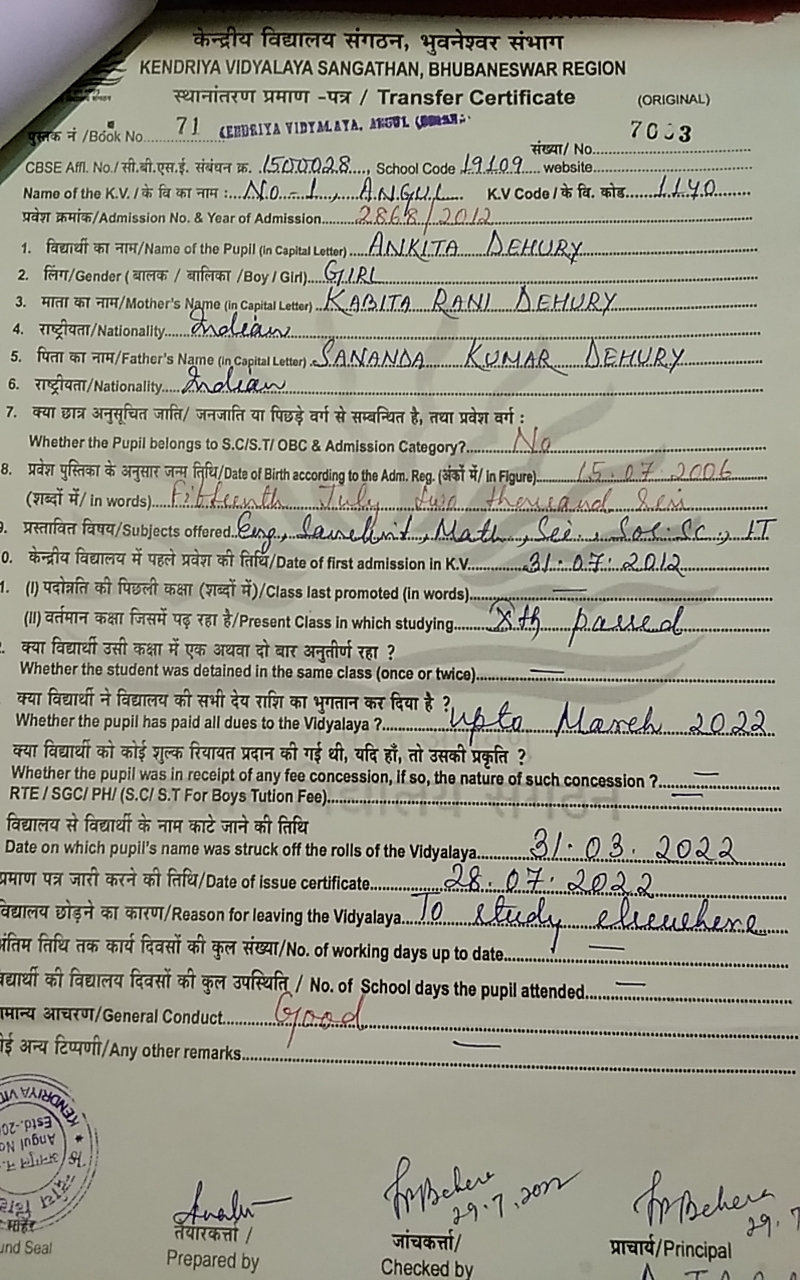 केन्द्रीय विद्यालय संगठन, भुवनेश्वर संभाग
KENDRIYA VIDYALAYA SANGATHAN, BHUBANESWAR REGION
स्थानांतरण प्रमाण -पत्र / Transfer Certificate (ORIGINAL)
पुस्तक नं /Book No. 71 KENDRIYA VIDYALAYA, ANGUL संख्या/ No. 7003
CBSE Affl. No./सी.बी.एस.ई. संबंधन क्र. 1500028, School Code 19109 website
Name of the K.V. / के वि का नाम : No-1, ANGUL K.V Code / के वि. कोड 1140
प्रवेश क्रमांक/Admission No. & Year of Admission 2868/2012
1. विद्यार्थी का नाम/Name of the Pupil (in Capital Letter) ANKITA DEHURY
2. लिंग/Gender ( बालक / बालिका /Boy / Girl) GIRL
3. माता का नाम/Mother's Name (in Capital Letter) KABITA RANI DEHURY
4. राष्ट्रीयता/Nationality Indian
5. पिता का नाम/Father's Name (in Capital Letter) SANANDA KUMAR DEHURY
6. राष्ट्रीयता/Nationality Indian
7. क्या छात्र अनुसूचित जाति/ जनजाति या पिछड़े वर्ग से सम्बन्धित है, तथा प्रवेश वर्ग :
Whether the Pupil belongs to S.C/S.T/ OBC & Admission Category? No
8. प्रवेश पुस्तिका के अनुसार जन्म तिथि/Date of Birth according to the Adm. Reg. (अंकों में/ in Figure) 15.07.2006
(शब्दों में/ in words) Fifteenth July two thousand
9. प्रस्तावित विषय/Subjects offered Eng, Sanskrit, Math, Sci., Soc.Sc., IT
0. केन्द्रीय विद्यालय में पहले प्रवेश की तिथि/Date of first admission in K.V. 31.07.2012
1. (I) पदोन्नति की पिछली कक्षा (शब्दों में)/Class last promoted (in words) —
(II) वर्तमान कक्षा जिसमें पढ़ रहा है/Present Class in which studying Xth passed
क्या विद्यार्थी उसी कक्षा में एक अथवा दो बार अनुतीर्ण रहा ?
Whether the student was detained in the same class (once or twice) —
क्या विद्यार्थी ने विद्यालय की सभी देय राशि का भुगतान कर दिया है ?
Whether the pupil has paid all dues to the Vidyalaya ? upto March 2022
क्या विद्यार्थी को कोई शुल्क रियायत प्रदान की गई थी, यदि हाँ, तो उसकी प्रकृति ?
Whether the pupil was in receipt of any fee concession, if so, the nature of such concession ? —
RTE / SGC/ PH/ (S.C/ S.T For Boys Tution Fee) —
विद्यालय से विद्यार्थी के नाम काटे जाने की तिथि
Date on which pupil's name was struck off the rolls of the Vidyalaya 31.03.2022
प्रमाण पत्र जारी करने की तिथि/Date of issue certificate 28.07.2022
विद्यालय छोड़ने का कारण/Reason for leaving the Vidyalaya To study elsewhere
अंतिम तिथि तक कार्य दिवसों की कुल संख्या/No. of working days up to date —
विद्यार्थी की विद्यालय दिवसों की कुल उपस्थिति / No. of School days the pupil attended —
सामान्य आचरण/General Conduct Good
कोई अन्य टिप्पणी/Any other remarks —
KENDRIYA
Angul No
Estd.
Behera 29.7.2022
Behera 29.7
तैयारकर्त्ता / जांचकर्त्ता/ प्राचार्य/Principal
Prepared by Checked by
Seal